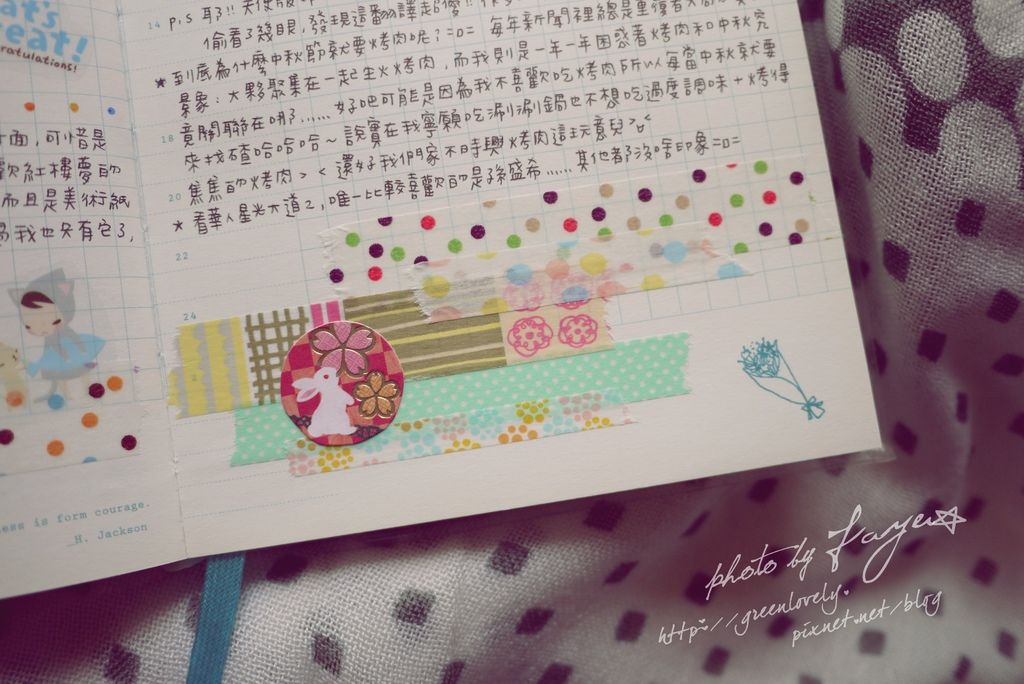 at's
reat!
ratulations!
方面,可惜是
歡紅樓夢的
而且是美術紙
為我也只有它了,
ess is form courage.
H. Jackson
14 P.S 耶!!
偷看了幾眼,發現這翻譯起
★到底為什麼中秋節就要烤肉呢?=D= 每年新聞裡總是重複著
景象:大夥聚集在一起生火烤肉,而我則是一年一年困惑著烤肉和中秋究
18 竟關聯在哪......好吧可能是因為我不喜歡吃烤肉所以每當中秋就要
來找碴哈哈哈~說實在我寧願吃涮涮鍋也不想吃過度調味+烤得
20 焦焦的烤肉> <還好我們家不時興烤肉這玩意兒>o<
★看華人星光大道2,唯一比較喜歡的是孫盛希......其他都沒啥印象=D=
22
24
photo by Faye☆
http://greenlovely.
pixnet.net/blog